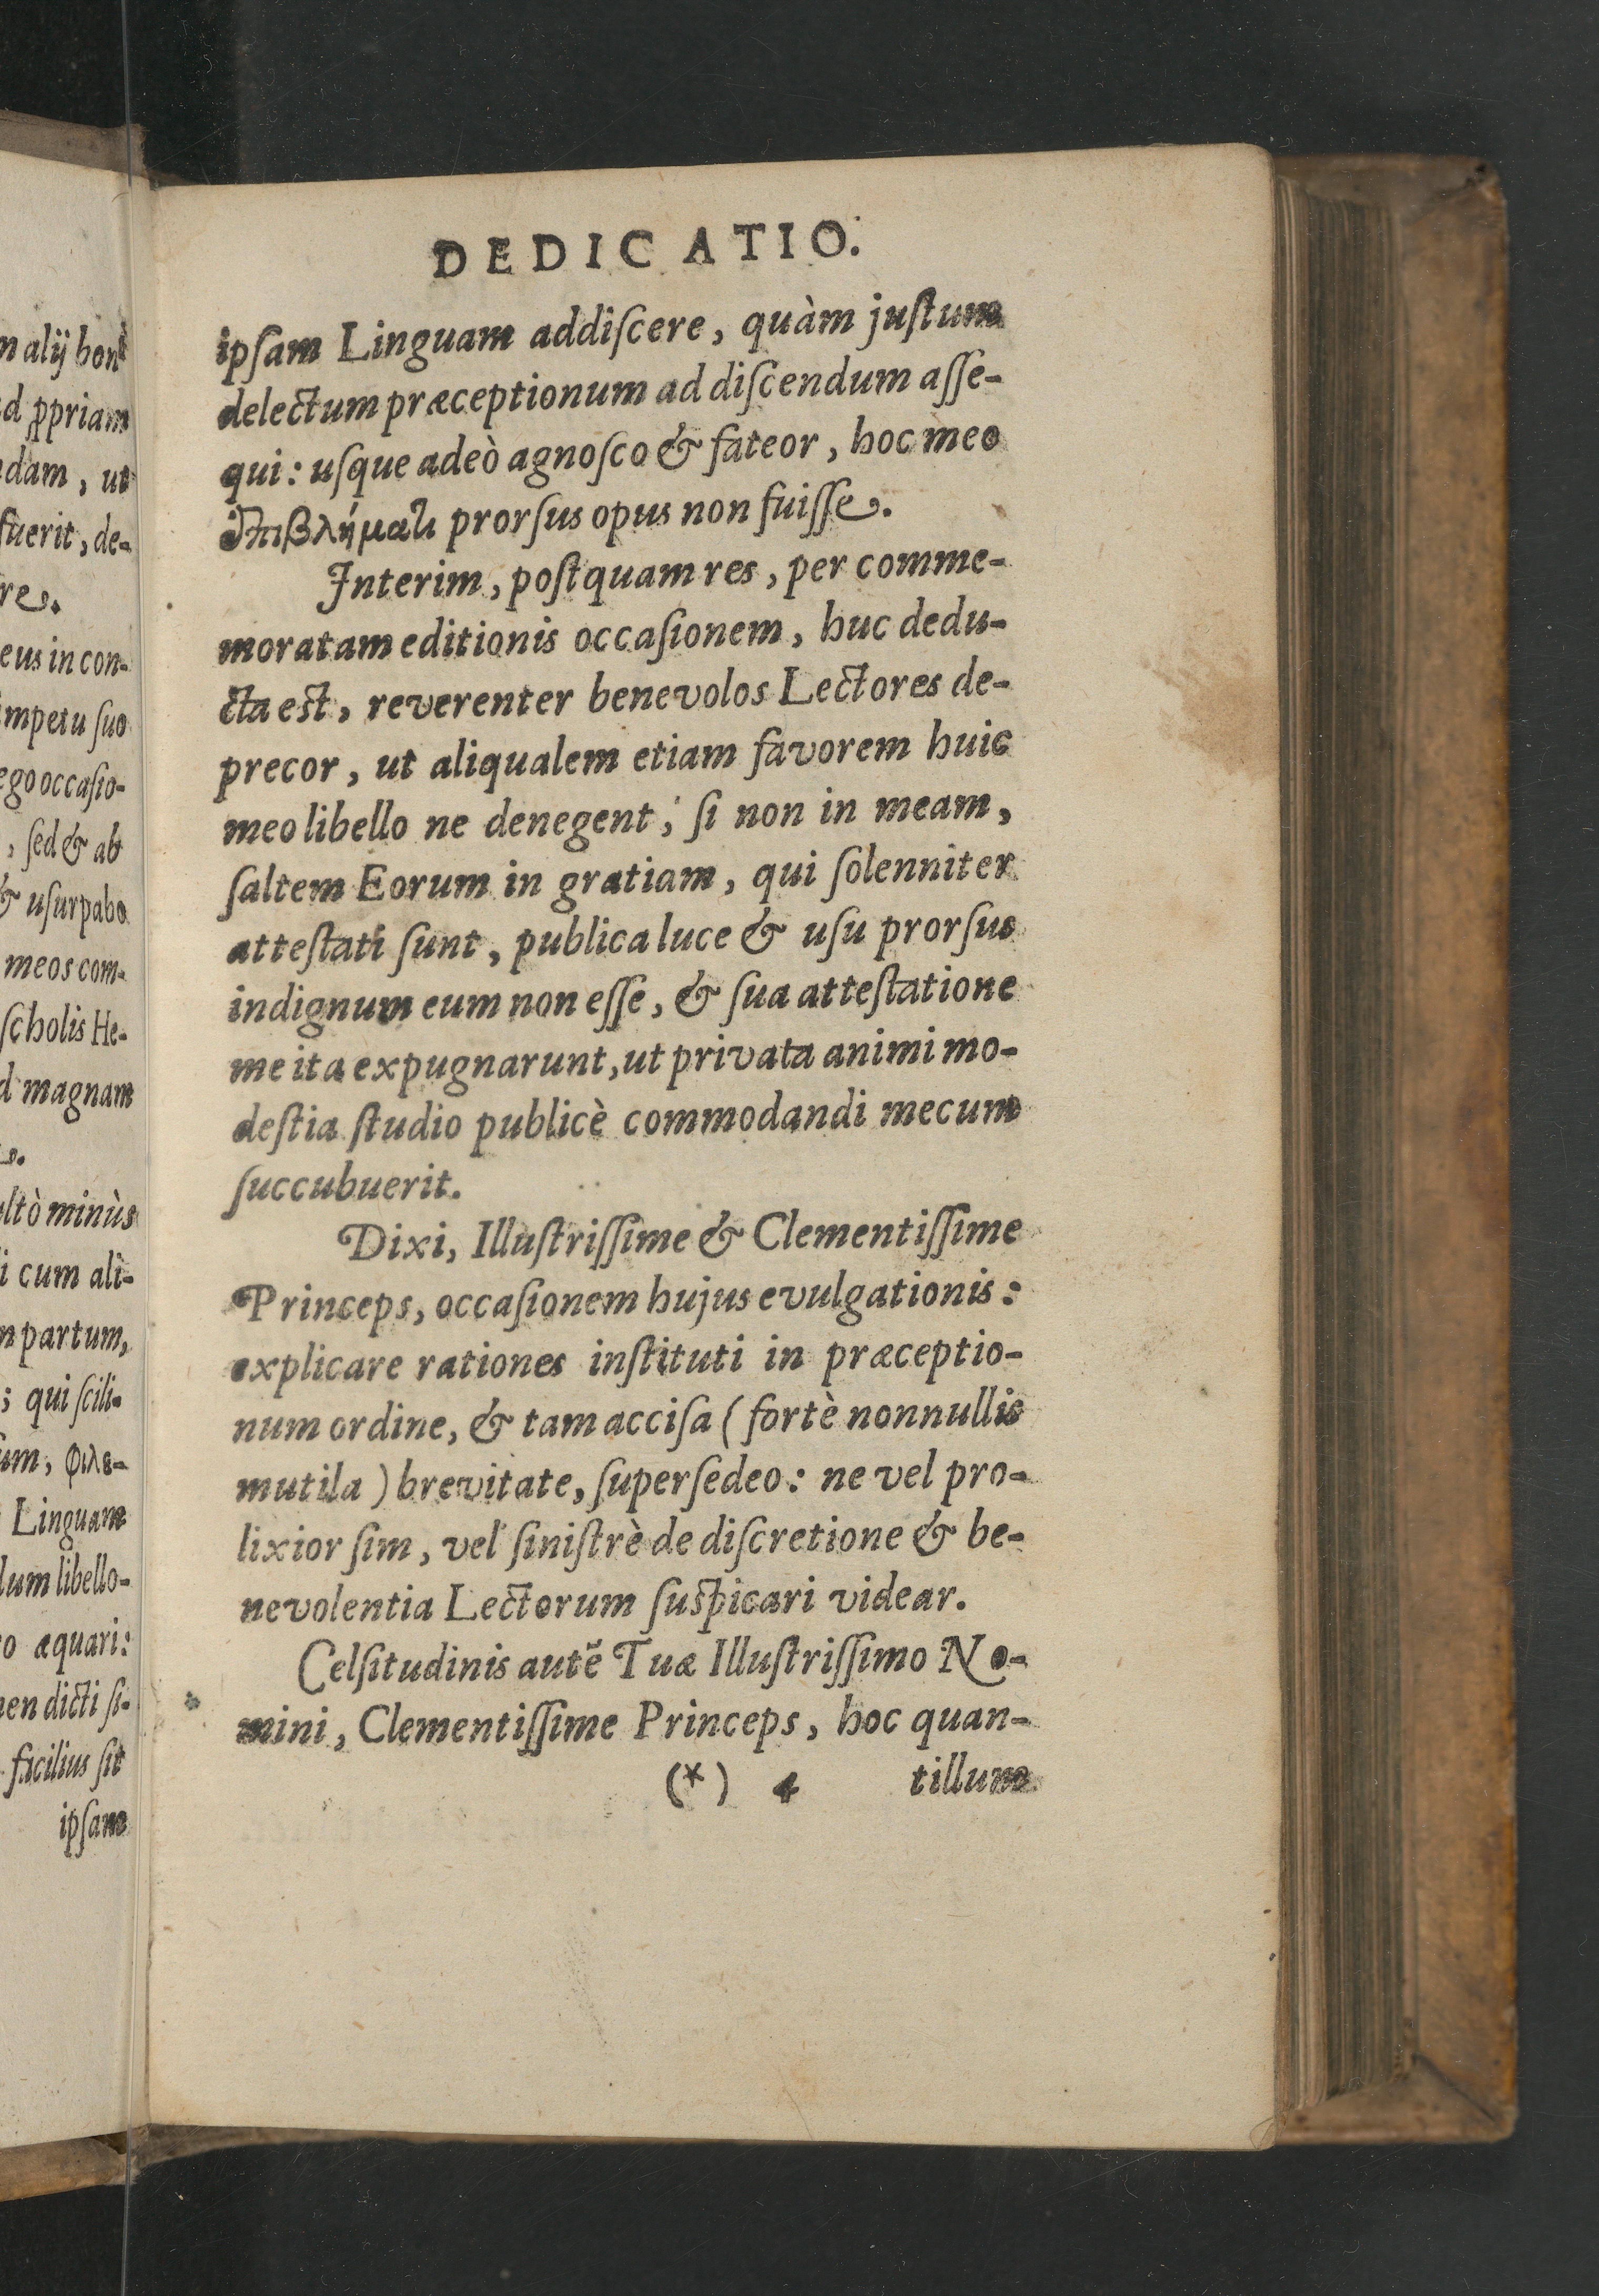 DEDICATIO.
ipſam Linguam addiſcere, quàm juſtum
delectum præceptionum ad diſcendum aſſe-
qui: uſque adeò agnoſco & fateor, hoc meo
ἐπιβλήματι prorſus opus non fuiſſe.
Interim, poſtquam res, per comme-
moratam editionis occaſionem, huc dedu-
cta eſt, reverenter benevolos Lectores de-
precor, ut aliqualem etiam favorem huic
meo libello ne denegent, ſi non in meam,
ſaltem Eorum in gratiam, qui ſolenniter
atteſtati ſunt, publica luce & uſu prorſus
indignum eum non eſſe, & ſua atteſtatione
me ita expugnarunt, ut privata animi mo-
deſtia ſtudio publicè commodandi mecum
ſuccubuerit.
Dixi, Illuſtriſſime & Clementiſſime
Princeps, occaſionem hujus evulgationis:
explicare rationes inſtituti in præceptio-
num ordine, & tam acciſa (fortè nonnullis
mutila) brevitate, ſuperſedeo: ne vel pro-
lixior ſim, vel ſiniſtrè de diſcretione & be-
nevolentia Lectorum ſuſpicari videar.
Celſitudinis autẽ Tuæ Illuſtriſſimo No-
mini, Clementiſſime Princeps, hoc quan-
(*) 4 tillum
n alij boni
d ꝓpriam
dam, ut
fuerit, de-
re.
eus in con-
impetu ſuo
ego occaſio-
, ſed & ab
& uſurpabo
meos com-
ſcholis He-
d magnam
ltò minùs
i cum ali-
n partum,
; qui ſcili-
um, φιλε-
Linguam
dum libello-
o æquari:
en dicti ſi-
facilius ſit
ipſam